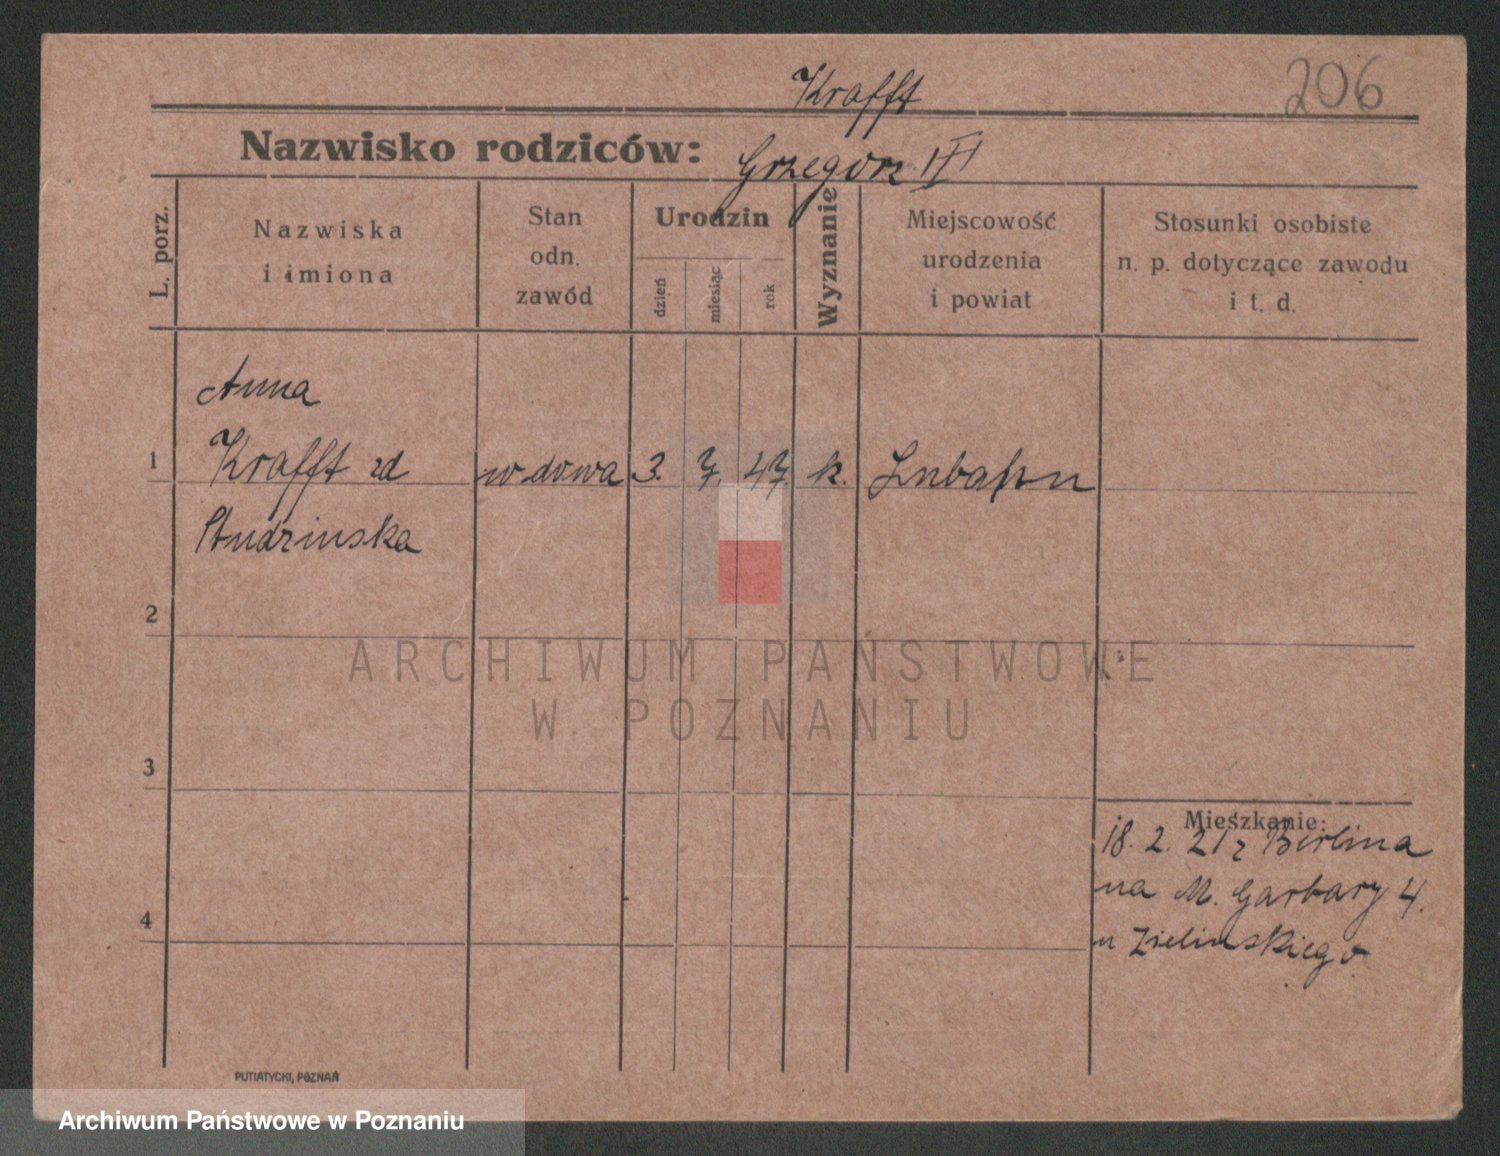 206
Krafft
Nazwisko rodziców: Grzegorz
L. porz.
Nazwiska
i imiona
Stan
odn.
zawód
Urodzin
dzień
miesiąc
rok
Wyznanie
Miejscowość
urodzenia
i powiat
Stosunki osobiste
n. p. dotyczące zawodu
i t. d.
Anna
1 Krafft zd wdowa 3. 7. 47. k.
Studzinska
2
ARCHIWUM PAŃSTWOWE
W POZNANIU
3
Mieszkanie:
18. 2. 21 z Berlina
na M. Garbary 4.
u Zielinskiego
4
PUTIATYCKI, POZNAŃ
Archiwum Państwowe w Poznaniu